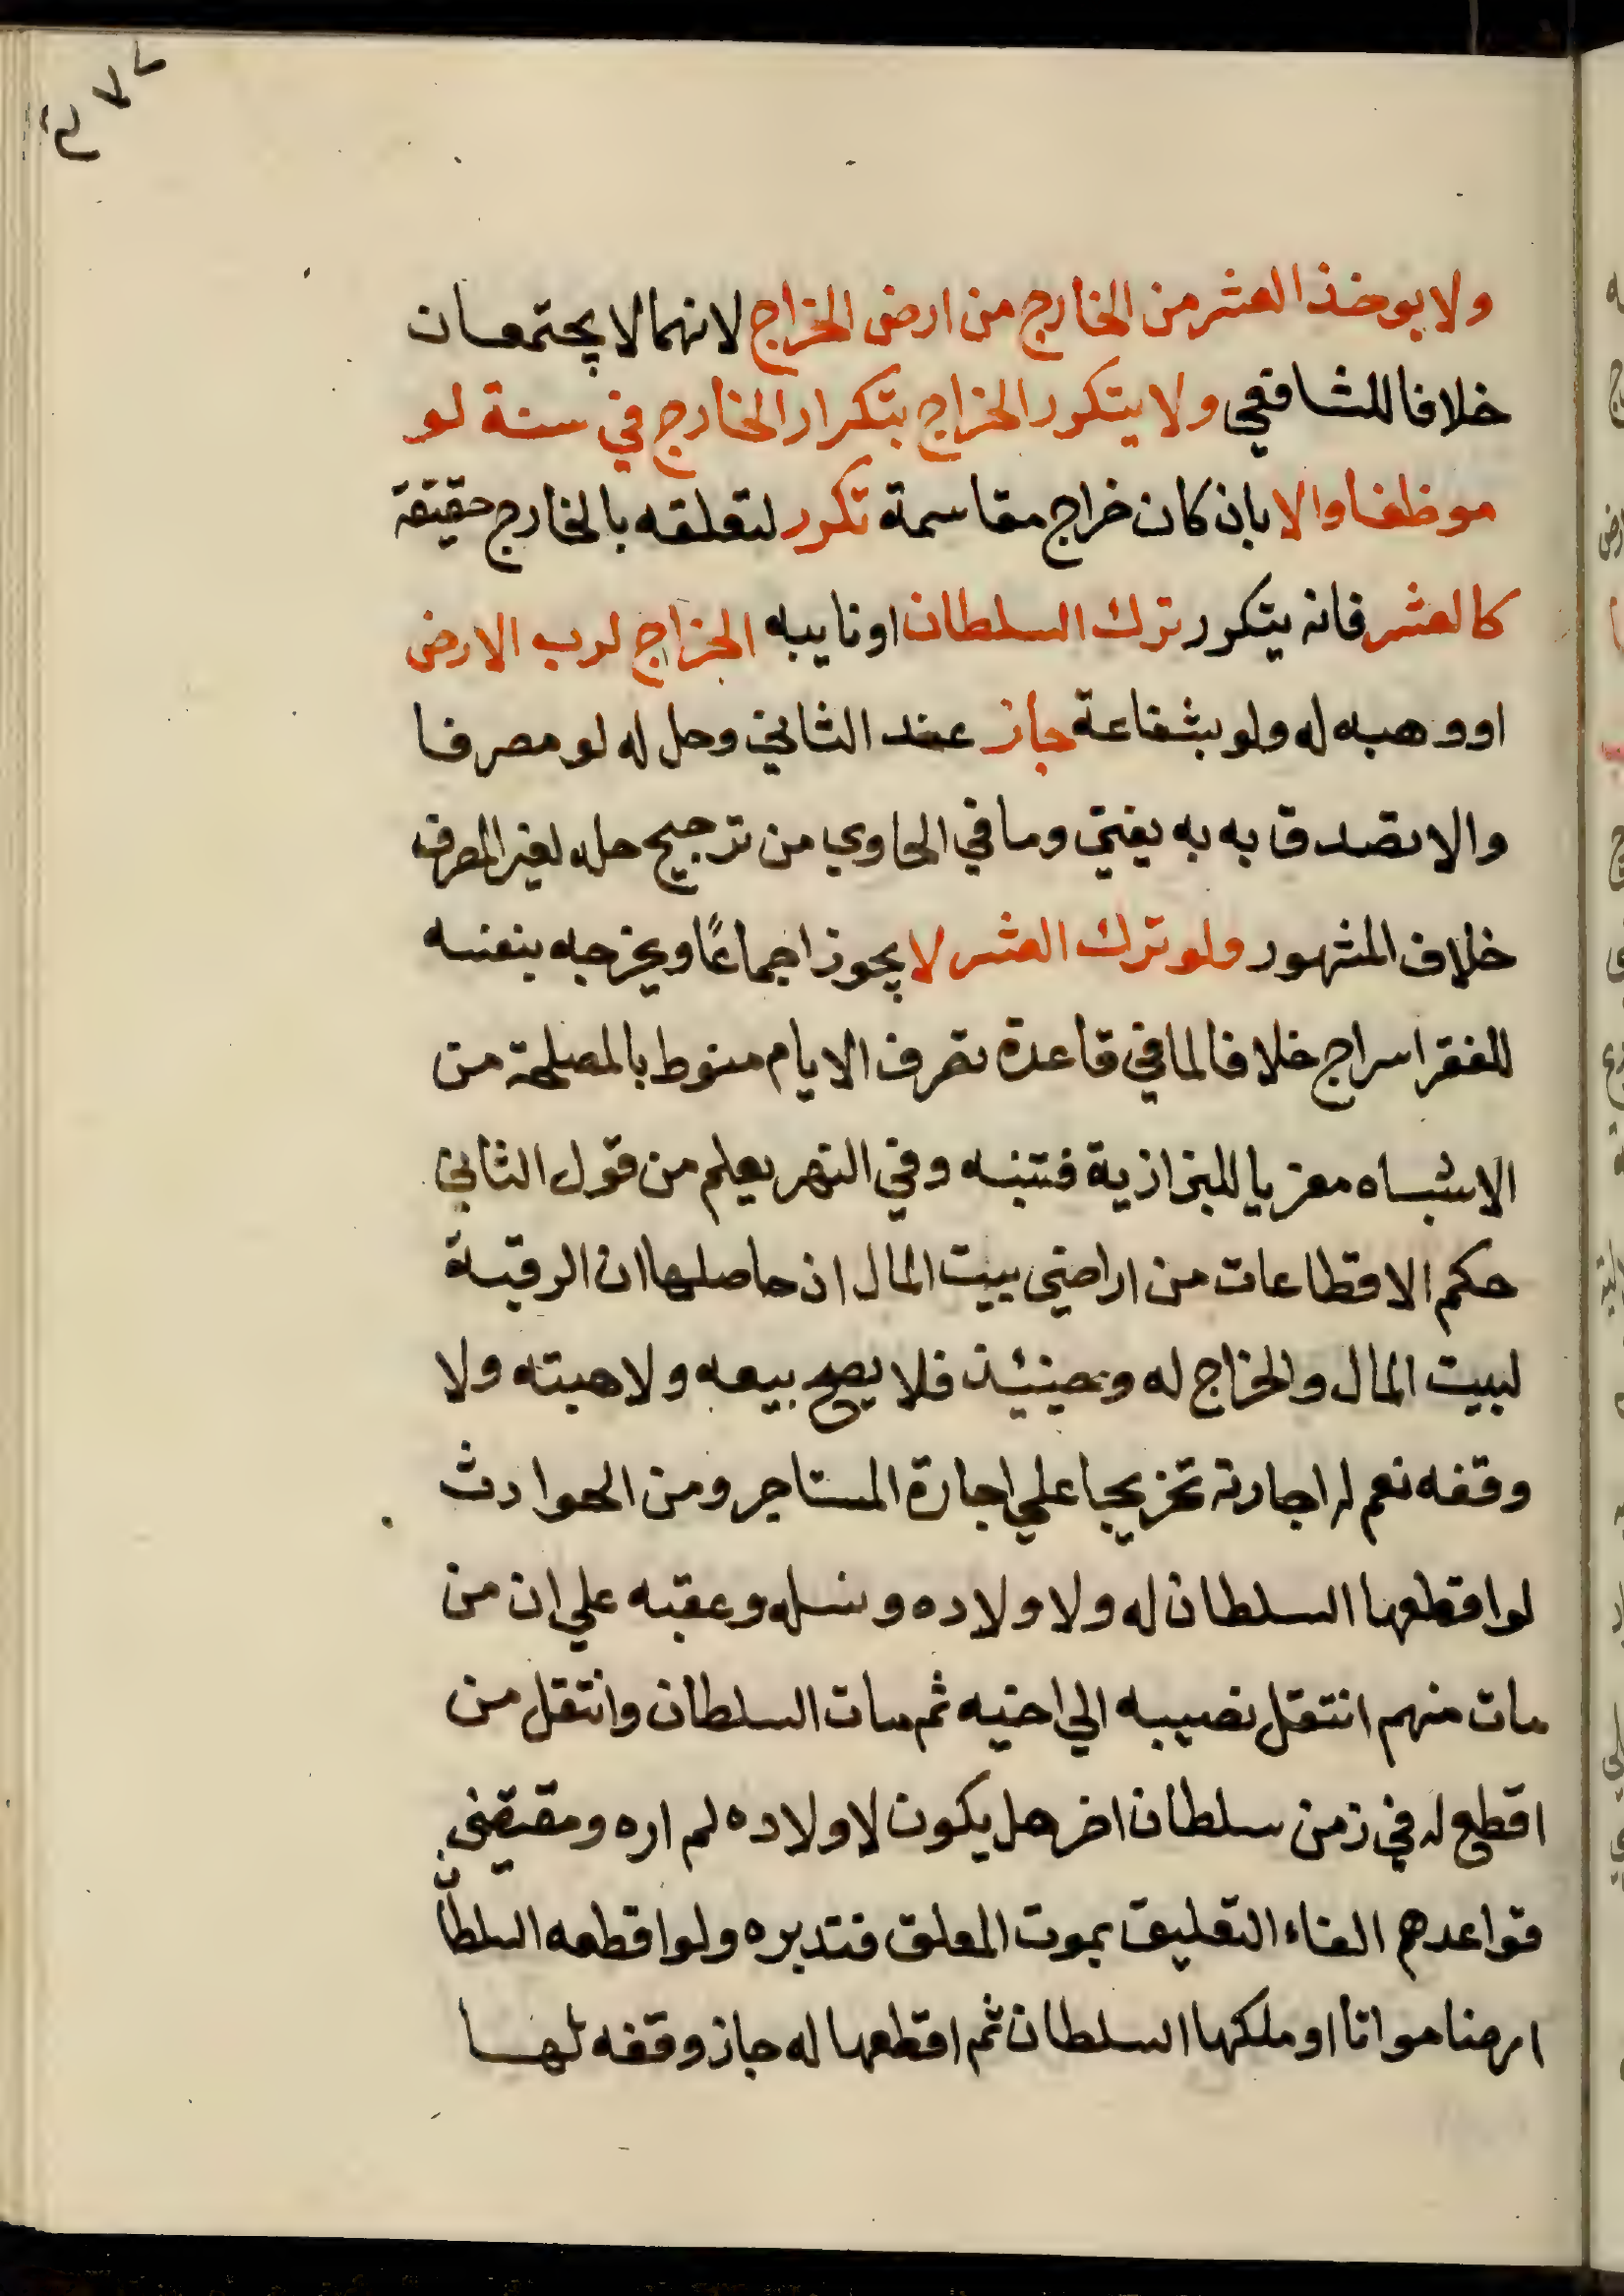 ولا يوخذ العشر من الخارج من ارض الخراج لانهما لا يجتمعان
خلافا للشافعي ولا يتكرر الخراج بتكرار الخارج في سنة لو
موظفا والا بان كان خراج مقاسمة تكرر لتعلقه بالخارج حقيقة
كالعشر فانه يتكرر ترك السلطان او نايبه الخراج لرب الارض
او وهبه له ولو بشفاعة جاز عند الثاني وحل له لو مصرفا
والا تصدق به به يفتي وما في الحاوي من ترجيح حله لغير المصرف
خلاف المشهور ولو ترك العشر لا يجوز اجماعًا ويخرجه بنفسه
للفقرا سراج خلافا لما في قاعدة تصرف الايام منوط بالمصلحة من
الاشباه معزيا للبزازية فتنبه وفي النهر يعلم من قول الثاني
حكم الاقطاعات من اراضي بيت المال اذ حاصلها ان الرقبة
لبيت المال والخراج له وحينئذ فلا يصح بيعه ولا هبته ولا
وقفه نعم له اجارته تخريجا علي اجارة المستاجر ومن الحوادث
لو اقطعها السلطان له ولاولاده ونسله وعقبه علي ان من
مات منهم انتقل نصيبه الي اخيه ثم مات السلطان وانتقل من
اقطع له في زمن سلطان اخر هل يكون لاولاده لم اره ومقتضي
قواعدهم الغاء التعليق بموت المعلق فتدبره ولو اقطعه السلطان
ارضا مواتا او ملكها السلطان ثم اقطعها له جاز وقفه لها